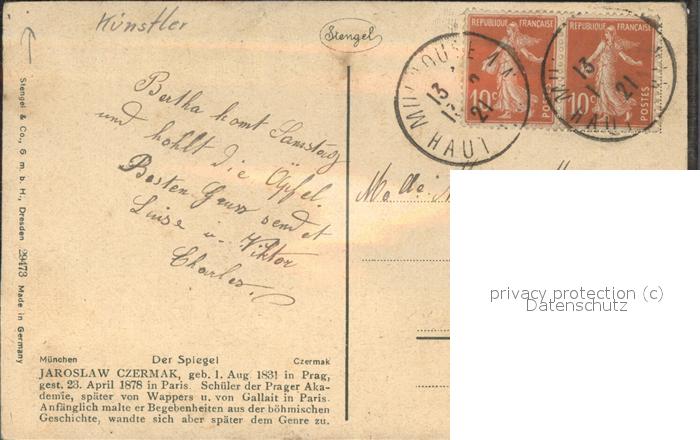 Künstler
Stengel
REPUBLIQUE FRANÇAISE
REPUBLIQUE FRANÇAISE
10c
POSTES
10c
POSTES
13
21
HAUT
13
21
HAUT
Bertha komt Samstag
und hohlt die Äpfel.
Besten Gruss sendet
Luise u. Viktor
Charles.
Melle
Stengel & Co., G. m. b. H., Dresden 29473 Made in Germany
privacy protection (c)
Datenschutz
München Der Spiegel Czermak
JAROSLAW CZERMAK, geb. 1. Aug 1831 in Prag,
gest. 23. April 1878 in Paris. Schüler der Prager Aka-
demie, später von Wappers u. von Gallait in Paris.
Anfänglich malte er Begebenheiten aus der böhmischen
Geschichte, wandte sich aber später dem Genre zu.